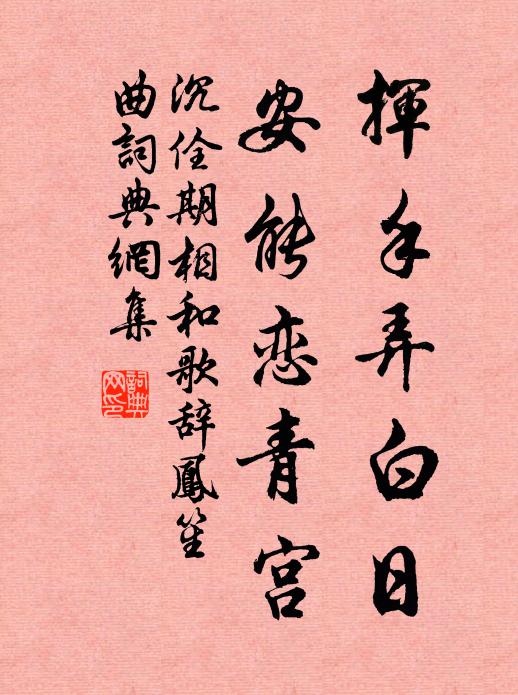 揮手弄白日
安能恋青宫
沉佺期相和歌辞鳳笙
曲詞典網集
詞典网印